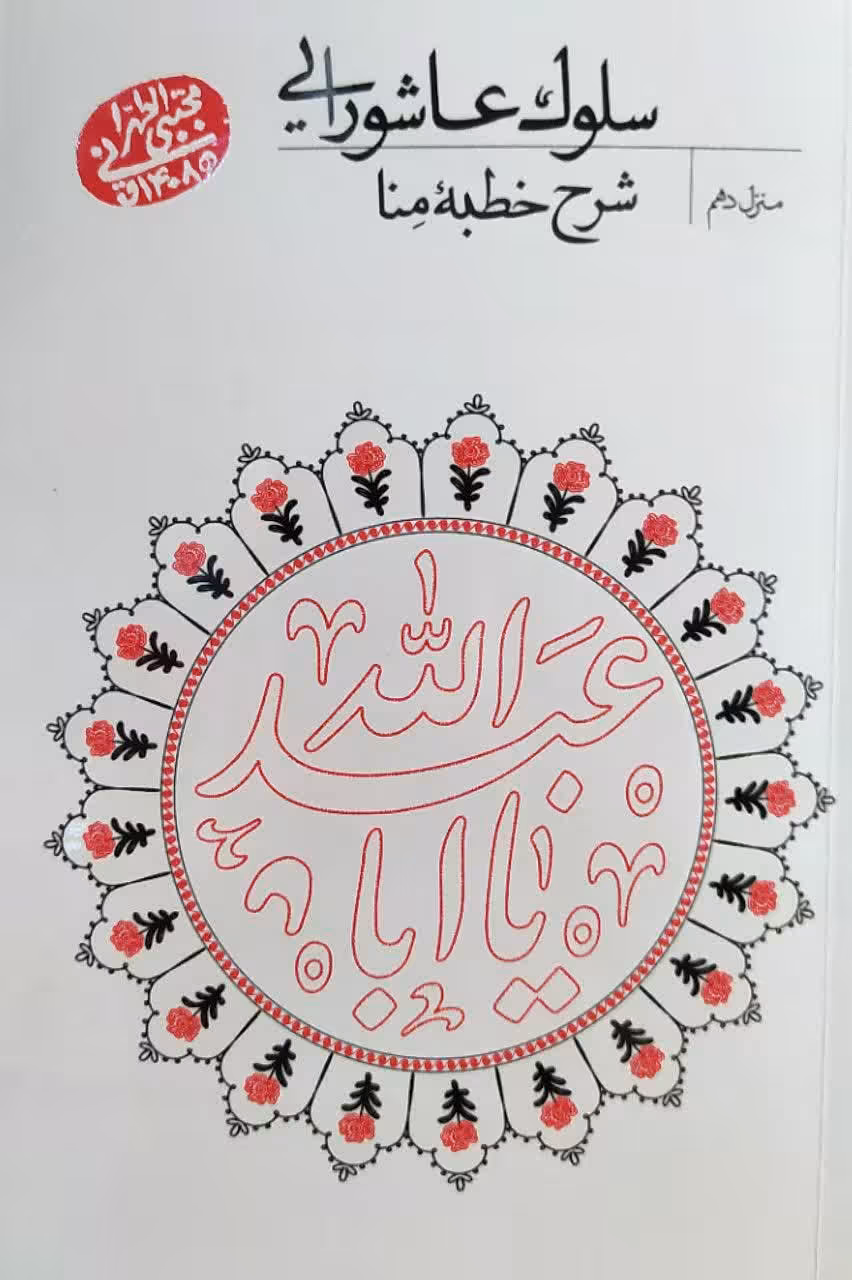 سلوك عاشورایی
منزل دهم
شرح خطبهٔ مِنا
مجتبی الطهرانی
۱۴۰۸ق
یا ابا
عبدالله